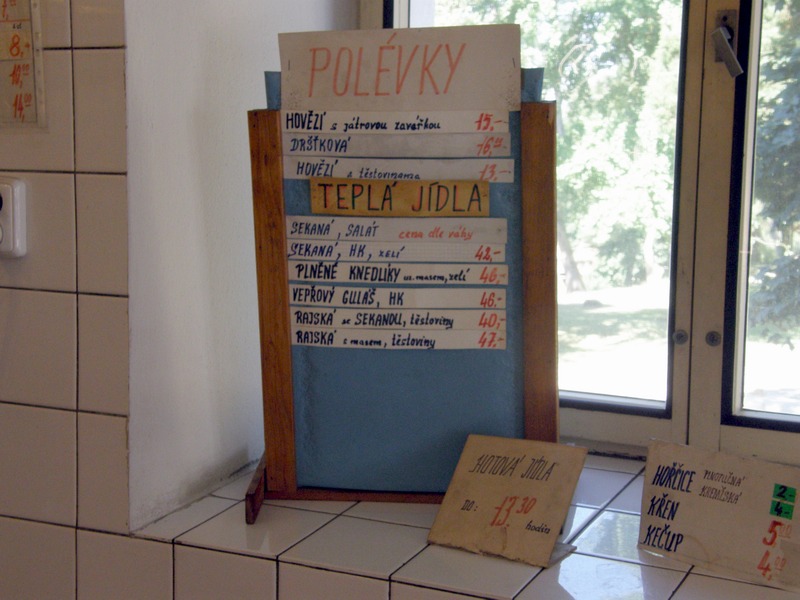 8.-
10.00
14.00
POLÉVKY
HOVĚZÍ s játrovou zavářkou 15,-
DRŠŤKOVÁ 16.00
HOVĚZÍ s těstovinama 13,-
TEPLÁ JÍDLA
SEKANÁ, SALÁT cena dle váhy
SEKANÁ, HK, zelí 42,-
PLNĚNÉ KNEDLÍKY uz. masem, zelí 46,-
VEPŘOVÝ GULÁŠ, HK 46,-
RAJSKÁ se SEKANOU, těstoviny 40,-
RAJSKÁ s masem, těstoviny 47,-
HOTOVÁ JÍDLA
DO: 13,30 hodin
HOŘČICE PLNOTUČNÁ 2,-
KREMŽSKÁ 4,-
KŘEN 5
KEČUP 4